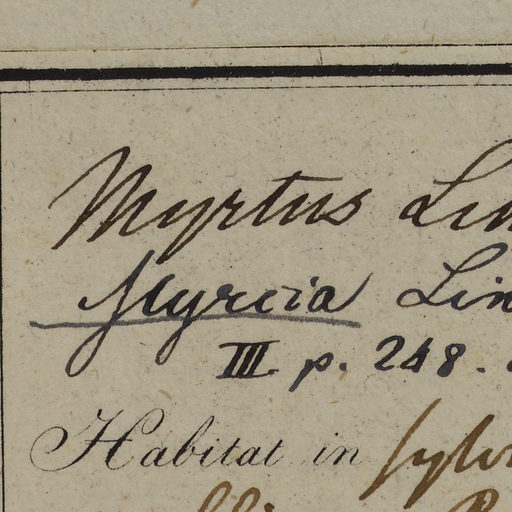 Myrtus Lin
Myrcia Lin
III p. 248.
Habitat in sylv